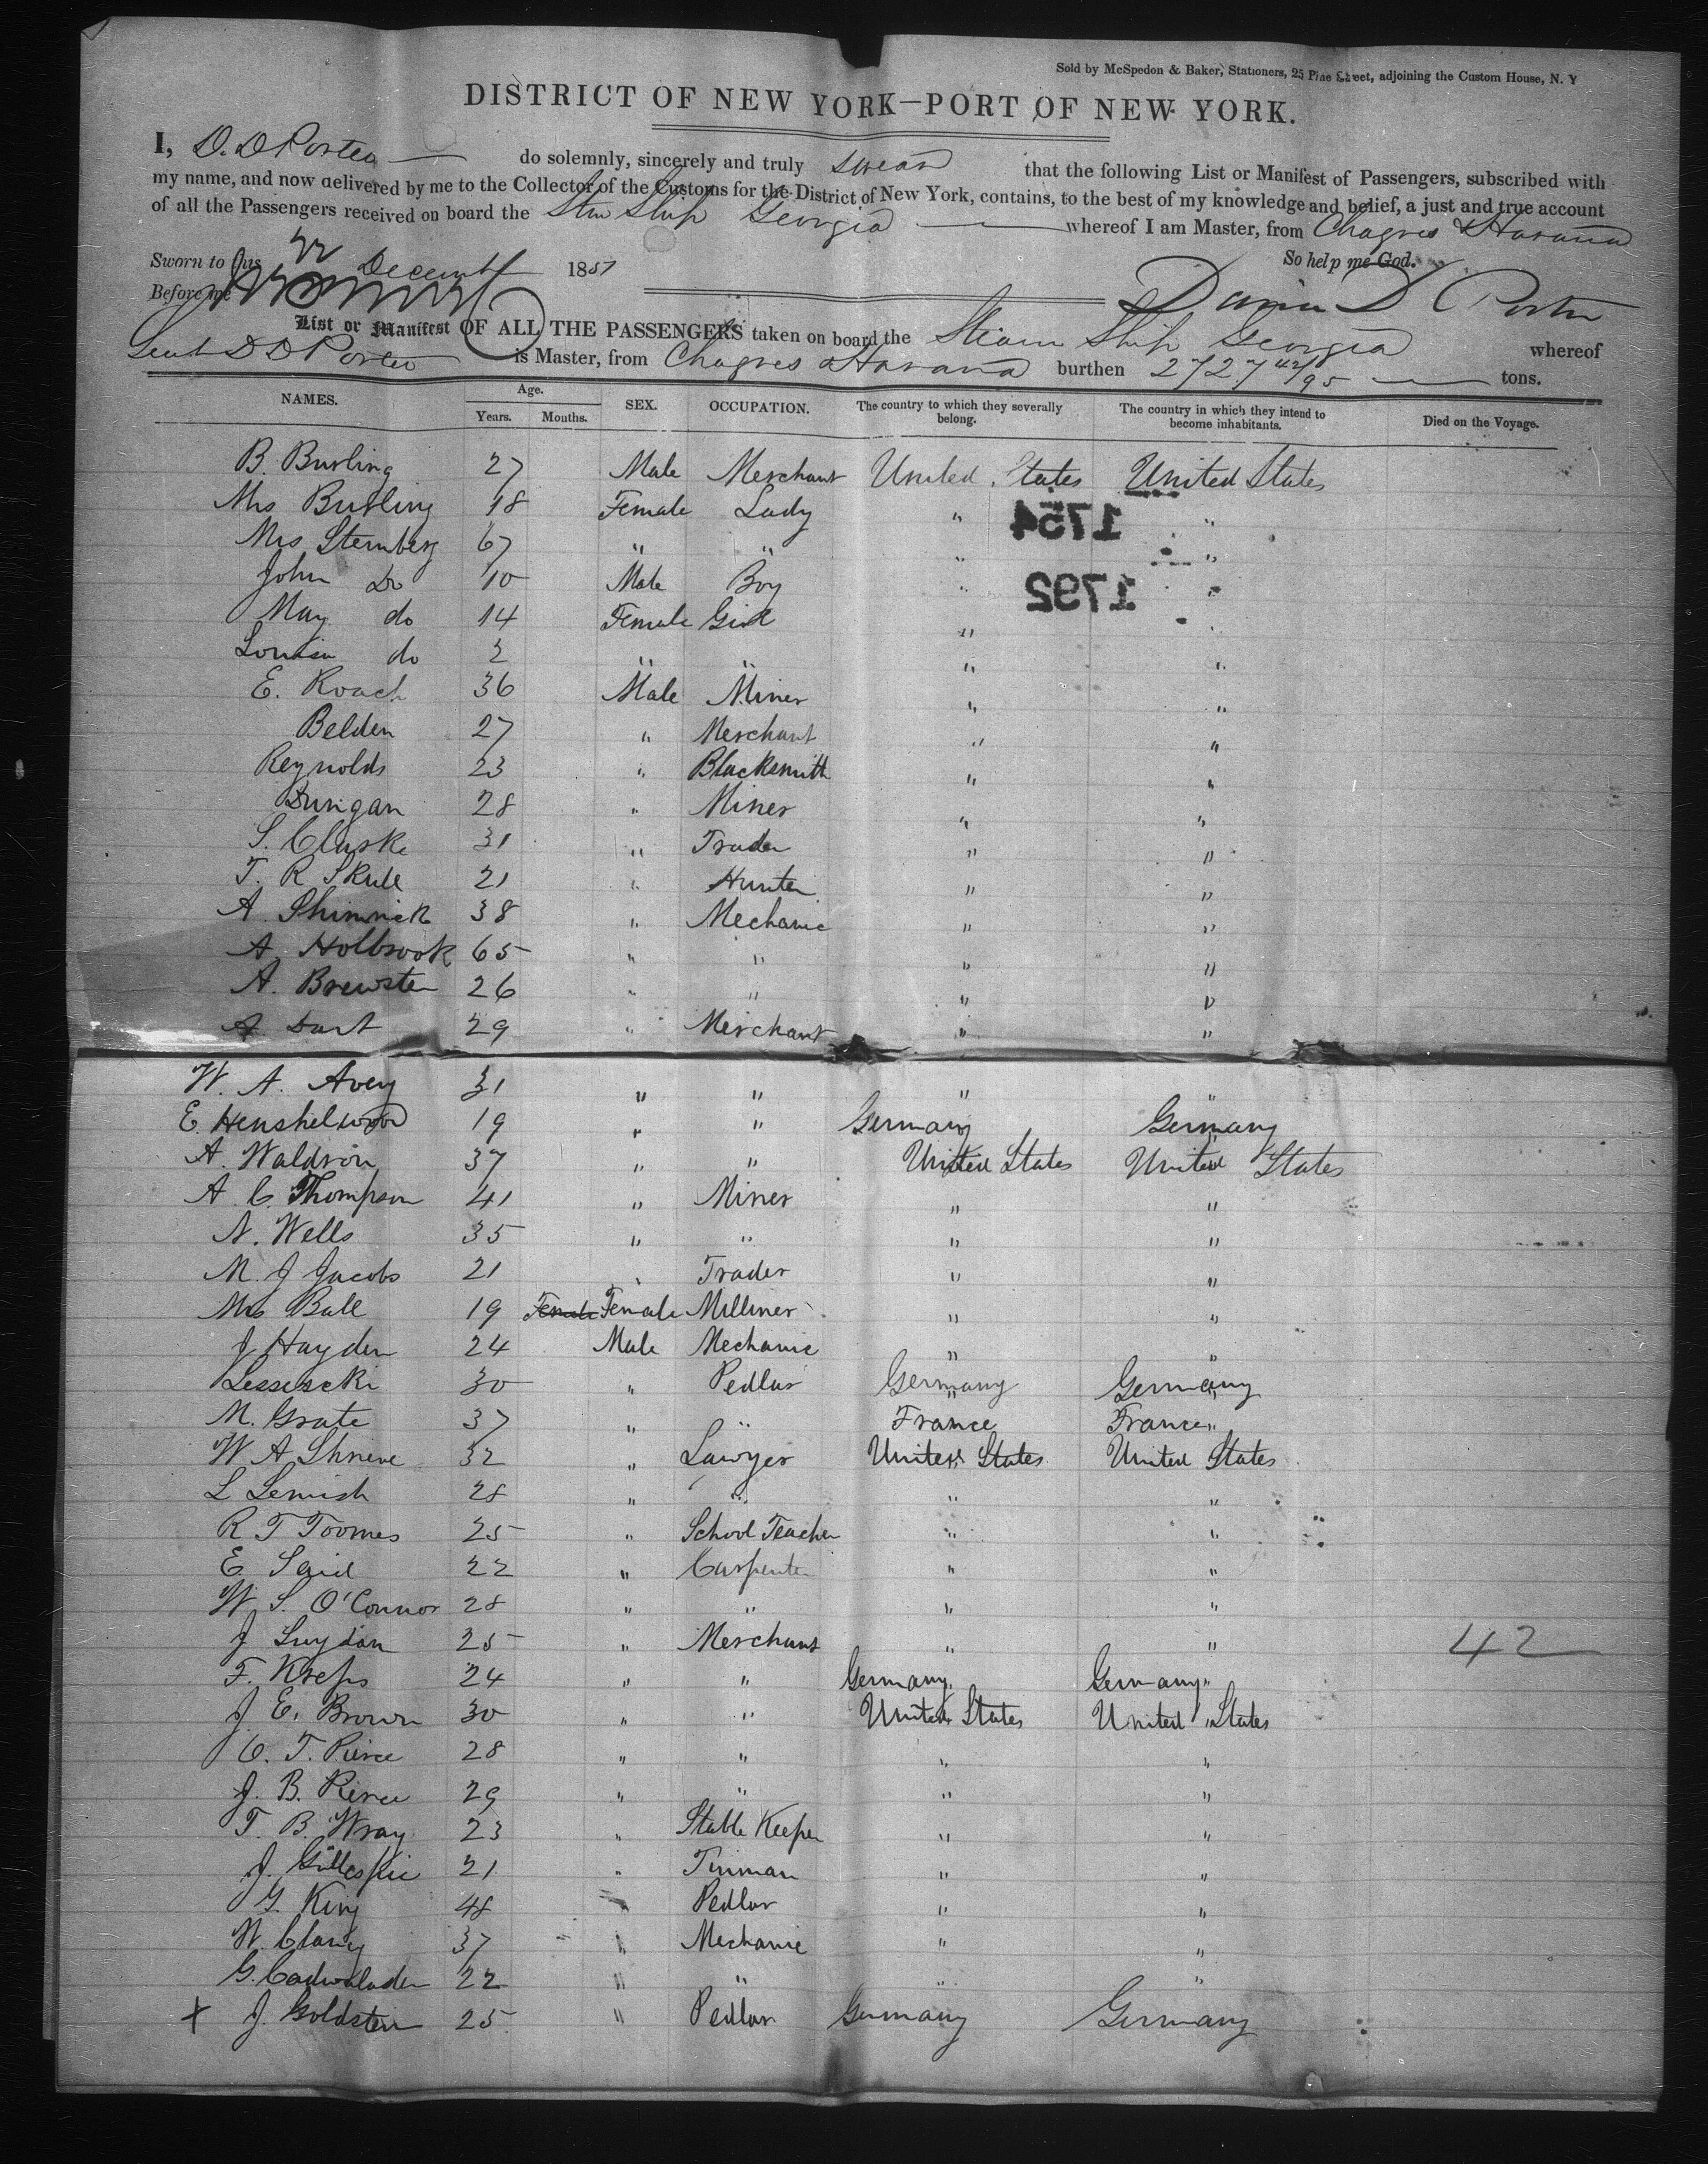 Sold by McSpedon & Baker, Stationers, 25 Pine Street, adjoining the Custom House, N. Y
DISTRICT OF NEW YORK—PORT OF NEW YORK.
I, D. D Porter do solemnly, sincerely and truly swear that the following List or Manifest of Passengers, subscribed with
my name, and now delivered by me to the Collector of the Customs for the District of New York, contains, to the best of my knowledge and belief, a just and true account
of all the Passengers received on board the Stm Ship Georgia whereof I am Master, from Chagres & Havana
Sworn to this 22 December 1851 So help me God.
Before me David D Porter
List or Manifest OF ALL THE PASSENGERS taken on board the Steam Ship Georgia whereof
Lieut D D Porter is Master, from Chagres & Havana burthen 2727 42/95 tons.
NAMES. Age. Years. Months. SEX. OCCUPATION. The country to which they severally belong. The country in which they intend to become inhabitants. Died on the Voyage.
B. Burling 27 Male Merchant United States United States
Mrs Burling 18 Female Lady " "
1754
Mrs Sternberg 67 " " " "
John Do 10 Male Boy " "
1792
May do 14 Female Girl " "
Louisa do 2 " " " "
E. Roach 36 Male Miner " "
Belden 27 " Merchant " "
Reynolds 23 " Blacksmith " "
Dungan 28 " Miner " "
S. Clarke 31 " Trader " "
T. R Skull 21 " Hunter " "
A. Shinnick 38 " Mechanic " "
A. Holbrook 65 " " " "
A. Brewster 26 " " " "
A Dart 29 " Merchant " "
W. A. Avery 31 " " " "
E Henshelwood 19 " " Germany Germany
A. Waldron 37 " " United States United States
A. C. Thompson 41 " Miner " "
N. Wells 35 " " " "
M. J Jacobs 21 " Trader " "
Mrs Ball 19 Female Female Milliner " "
J Hayden 24 Male Mechanic " "
Lessescki 30 " Pedlar Germany Germany
M. Grate 37 " " France France
W A Shreve 32 " Lawyer United States United States
L Lemish 28 " " " "
R T Toomes 25 " School Teacher " "
E Said 22 " Carpenter " "
W. S. O'Connor 28 " " " "
J Luydan 25 " Merchant " " 42
F. Kreps 24 " " Germany Germany
J. E. Brown 30 " " United States United States
C. T. Pierce 28 " " " "
J. B. Pierce 29 " " " "
T. B. Wray 23 " Stable Keeper " "
J. Gillespie 21 " Tinman " "
G. King 48 " Pedlar " "
W. Clancy 37 " Mechanic " "
G. Cadwalader 22 " " " "
x J. Goldstein 25 " Pedlar Germany Germany